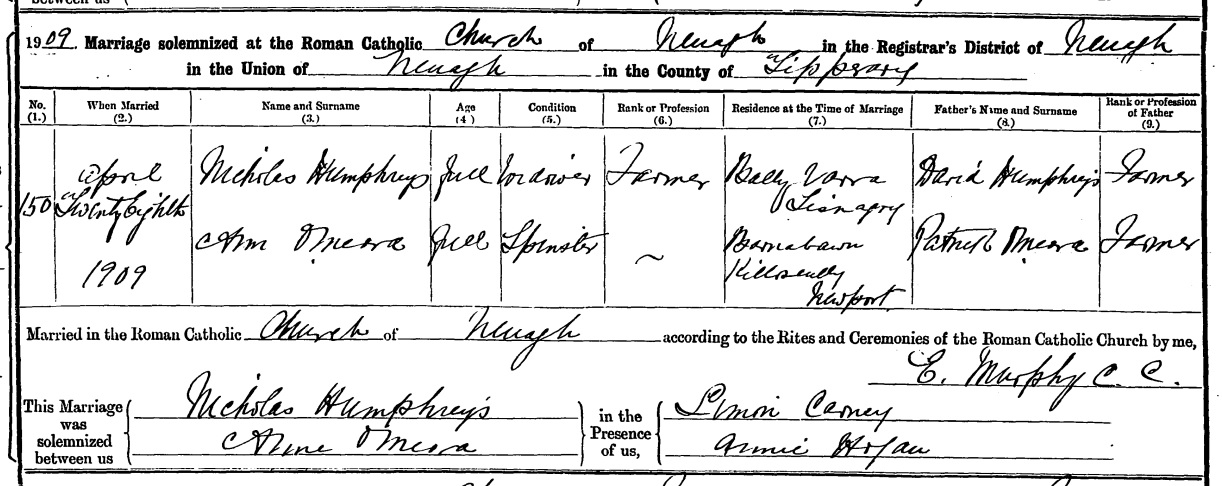 between us
1909. Marriage solemnized at the Roman Catholic Church of Nenagh in the Registrar's District of Nenagh
in the Union of Nenagh in the County of Tipperary
No. (1.) When Married (2.) Name and Surname (3.) Age (4) Condition (5.) Rank or Profession (6.) Residence at the Time of Marriage (7.) Father's Name and Surname (8.) Rank or Profession of Father (9.)
150 April Twenty Eighth 1909
Nicholas Humphreys Full Widower Farmer Bally Varra Lisnagry David Humphreys Farmer
Ann OMeara Full Spinster ~ Barnabawn Killoscully Newport Patrick OMeara Farmer
Married in the Roman Catholic Church of Nenagh according to the Rites and Ceremonies of the Roman Catholic Church by me,
E. Murphy C. C.
This Marriage was solemnized between us
Nicholas Humphreys
Anne OMeara
in the Presence of us,
Simon Carney
Annie Hogan